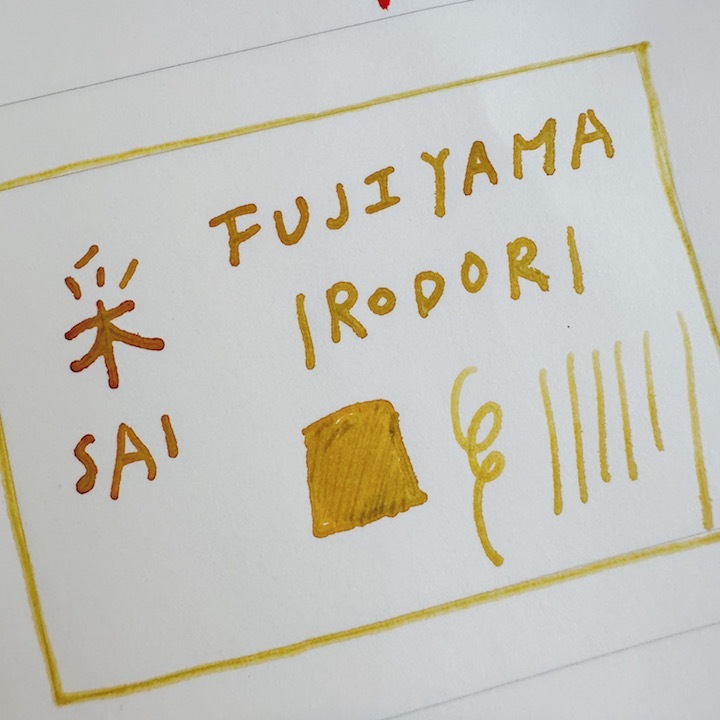 FUJIYAMA
IRODORI
采
SAI